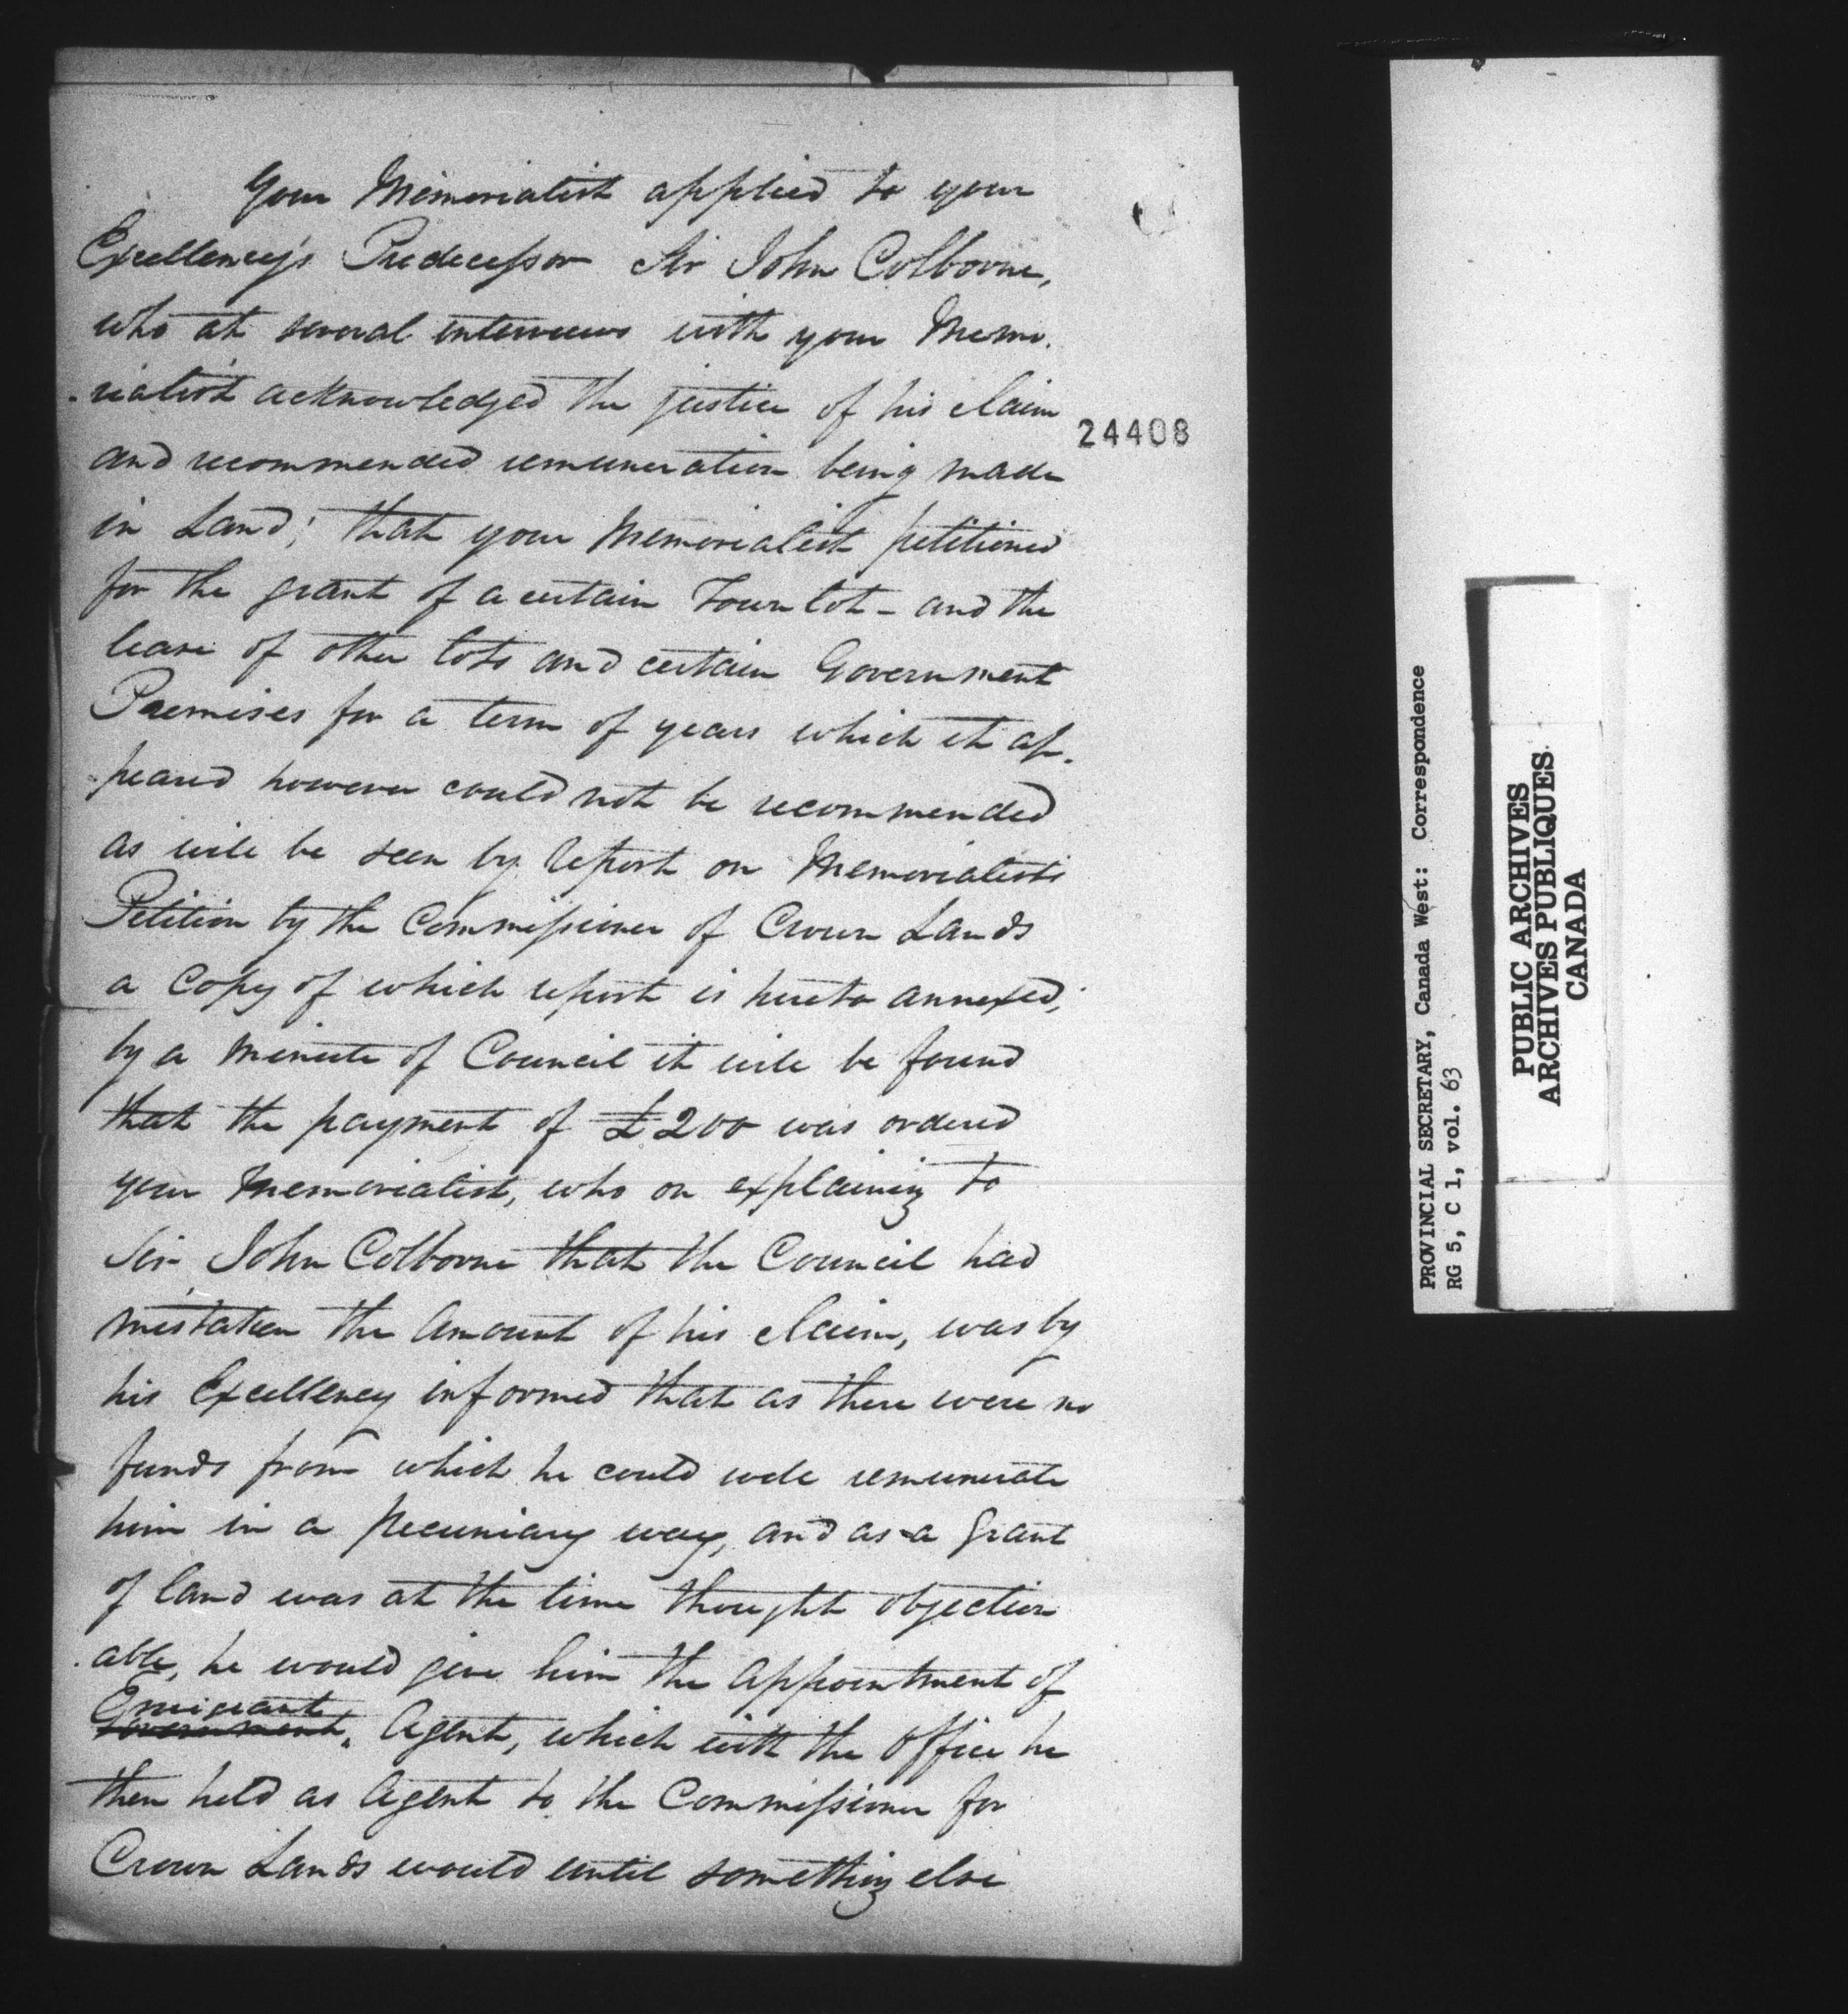 Your Memorialist applied to your
Excellency's Predecessor Sir John Colborne,
who at several interviews with your Memo-
-rialist acknowledged the justice of his claim
24408
and recommended remuneration being made
in Land; that your Memorialist petitioned
for the grant of a certain Town lot - and the
lease of other lots and certain Government
Premises for a term of years which it ap-
-peared however could not be recommended
as will be seen by report on Memorialists
Petition by the Commissioner of Crown Lands
a Copy of which report is hereto annexed;
by a minute of Council it will be found
that the payment of £200 was ordered
your Memorialist, who on explaining to
Sir John Colborne that the Council had
mistaken the amount of his claim, was by
his Excellency informed that as there were no
funds from which he could well remunerate
him in a pecuniary way, and as a grant
of land was at the time thought objection
-able, he would give him the appointment of
Emigrant
Government Agent, which with the office he
then held as Agent to the Commissioner for
Crown Lands would until something else
PROVINCIAL SECRETARY, Canada West: Correspondence
RG 5, C 1, vol. 63
PUBLIC ARCHIVES
ARCHIVES PUBLIQUES
CANADA